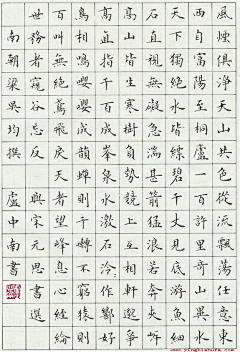 風煙俱淨天山共色從流飄蕩任意東
西自富陽至桐廬一百許里奇山異水
天下獨絕水皆縹碧千丈見底游魚細
石直視無礙急湍甚箭猛浪若奔夾岸
高山皆生寒樹負勢競上互相軒邈爭
高直指千百成峰泉水激石泠泠作響好
鳥相鳴嚶嚶成韻蟬則千轉不窮猿則
百叫無絕鳶飛戾天者望峰息心經綸
世務者窺谷忘反 與宋元思書選
南朝梁吳均撰 盧中南書